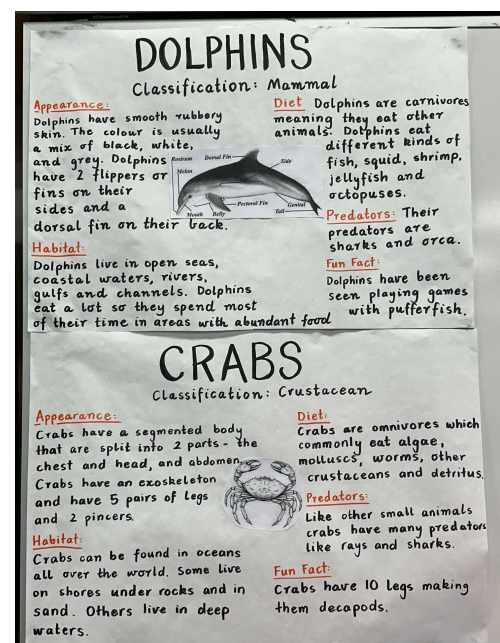 DOLPHINS
Classification: Mammal
Appearance:
Dolphins have smooth rubbery
skin. The colour is usually
a mix of black, white,
and grey. Dolphins
have 2 flippers or
fins on their
sides and a
dorsal fin on their back.
Habitat:
Dolphins live in open seas,
coastal waters, rivers,
gulfs and channels. Dolphins
eat a lot so they spend most
of their time in areas with abundant food
Rostrum
Dorsal Fin
Side
Melon
Mouth
Belly
Pectoral Fin
Genital
Tail
Diet Dolphins are carnivores
meaning they eat other
animals. Dolphins eat
different kinds of
fish, squid, shrimp,
jellyfish and
octopuses.
Predators: Their
predators are
sharks and orca.
Fun Fact:
Dolphins have been
seen playing games
with pufferfish.
CRABS
Classification: Crustacean
Appearance:
Crabs have a segmented body
that are split into 2 parts - the
chest and head, and abdomen
Crabs have an exoskeleton
and have 5 pairs of legs
and 2 pincers.
Habitat:
Crabs can be found in oceans
all over the world. Some live
on shores under rocks and in
sand. Others live in deep
waters.
Diet:
Crabs are omnivores which
commonly eat algae,
molluscs, worms, other
crustaceans and detritus.
Predators:
Like other small animals
crabs have many predators
like rays and sharks.
Fun Fact:
Crabs have 10 legs making
them decapods.